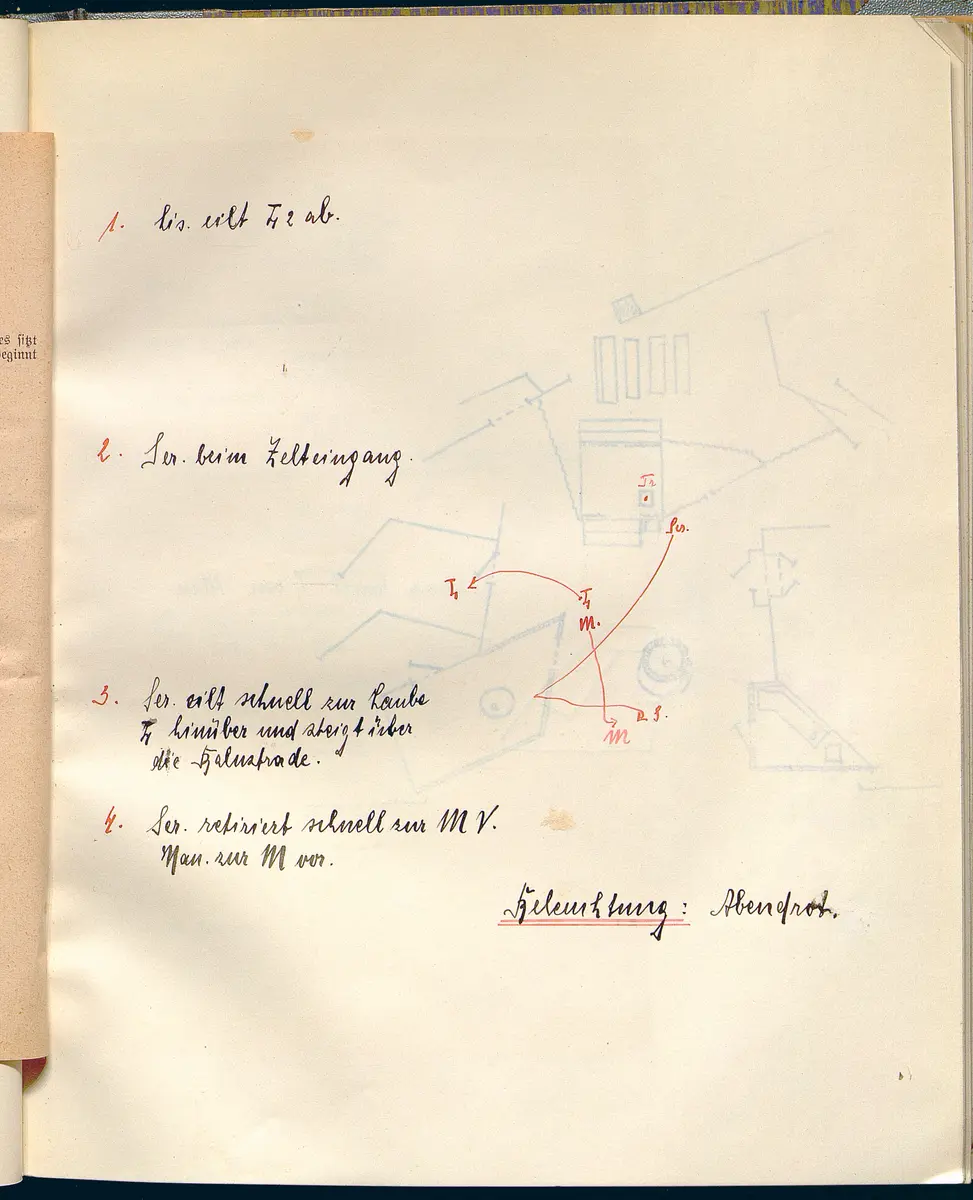 es sitzt
eginnt
1. Lis. eilt L 2 ab.
2. Ser. beim Zelteingang.
Tr
Ser.
M.
3. Ser. eilt schnell zur Laube
L hinüber und steigt über
die Balustrade.
S.
M
4. Ser. retiriert schnell zur M V.
Man. zur M vor.
Beleuchtung: Abendrot.